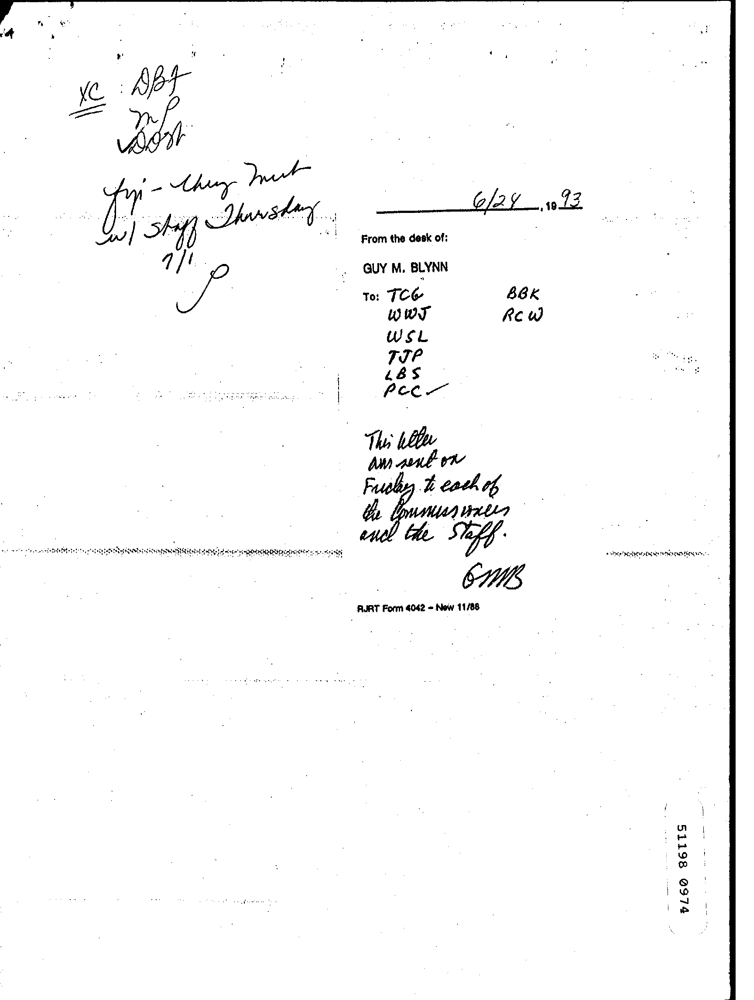 XC : DBF
MP
fyi - they meet
w/ staff Thursday
7/1
6/24, 1993
From the desk of:
GUY M. BLYNN
To: TCG BBK
WWJ RCW
WSL
TJP
LBS
PCC ✓
This letter
was sent on
Friday to each of
the Commissioners
and the Staff.
GMB
RJRT Form 4042 – New 11/86
51198 0974